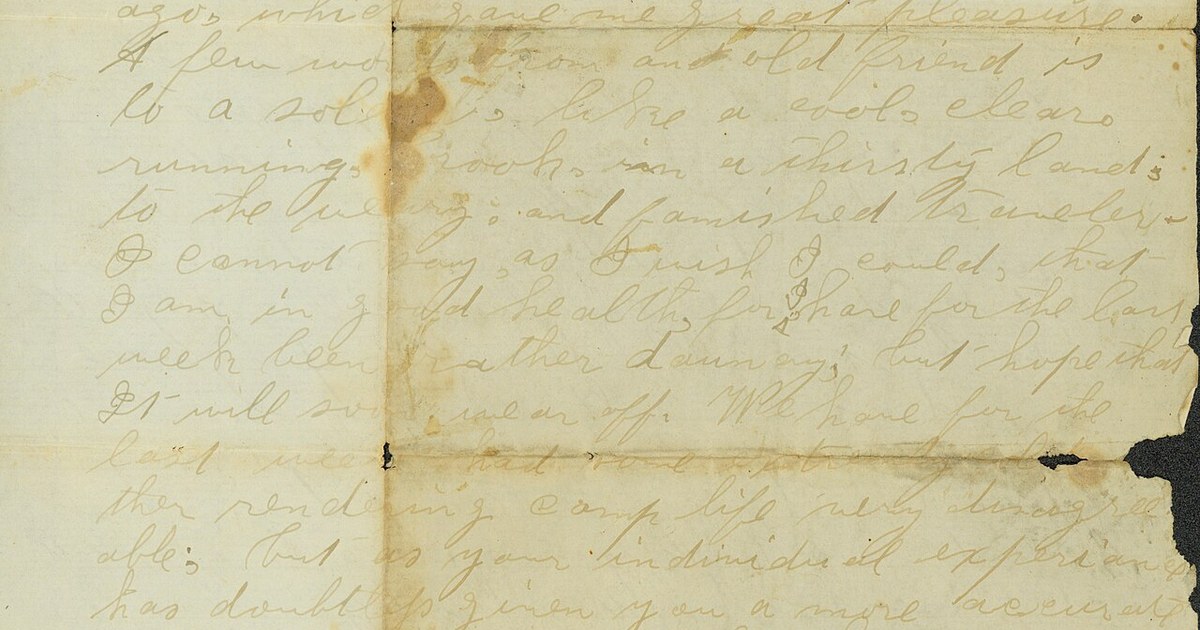 ago, which gave me great pleasure.
A few words from and old friend is
to a soldier, like a cool, clear,
running, brook, in a thirsty land;
to the weary; and famished traveler.
I cannot say, as I wish I could, that
I am in good health, for I have for the last
week been rather dauncy; but hope that
It will soon wear off. We have for the
last week had some
ther rendering camp life very disagree
able; but as your individual experiance
has doubtless given you a more accurate